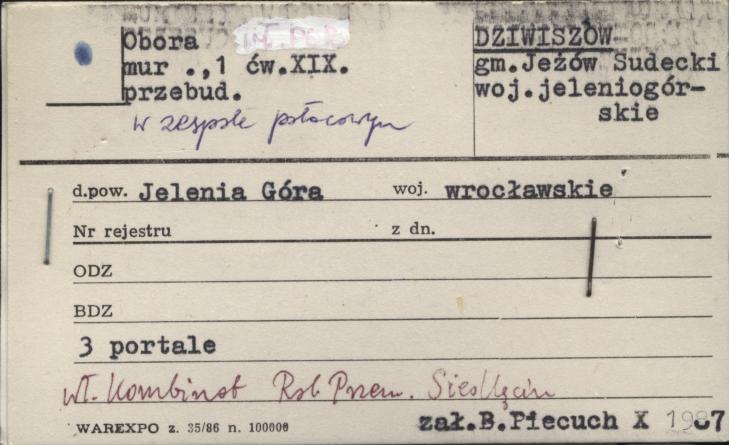 Obora
mur .,1 ćw.XIX.
przebud.
w zespole pałacowym
DZIWISZÓW
gm.Jeżów Sudecki
woj.jeleniogór-
skie
d.pow. Jelenia Góra woj. wrocławskie
Nr rejestru z dn.
ODZ
BDZ
3 portale
wł. Kombinat Rol. Przem. Siedlęcin
WAREXPO z. 35/86 n. 100000
zał.B.Piecuch X 1987